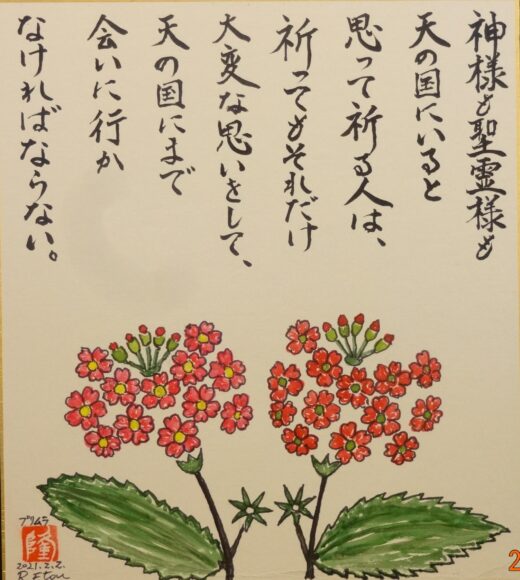 神様も聖霊様も
天の国にいると
思って祈る人は、
祈ってもそれだけ
大変な思いをして、
天の国にまで
会いに行か
なければならない。
プリムラ
隆
2021.2.2.
R Etou
2